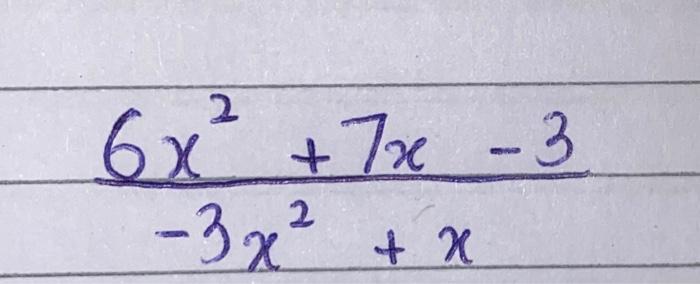 6x² + 7x - 3
-3x² + x